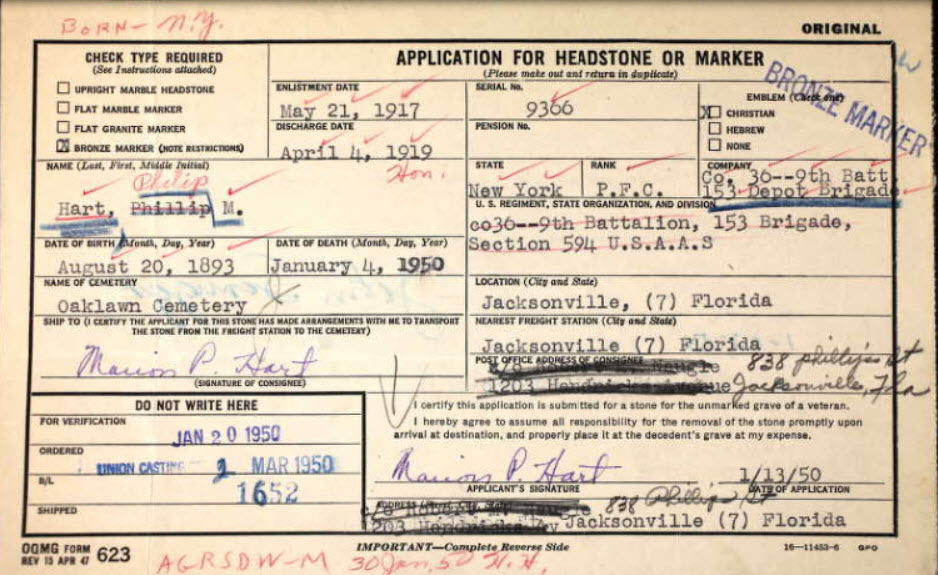 BORN - N.Y.
ORIGINAL
CHECK TYPE REQUIRED
(See Instructions attached)
UPRIGHT MARBLE HEADSTONE
FLAT MARBLE MARKER
FLAT GRANITE MARKER
X BRONZE MARKER (NOTE RESTRICTIONS)
APPLICATION FOR HEADSTONE OR MARKER
(Please make out and return in duplicate)
ENLISTMENT DATE
May 21, 1917
DISCHARGE DATE
April 4, 1919
Hon.
SERIAL No.
9366
PENSION No.
EMBLEM (Check one)
X CHRISTIAN
HEBREW
NONE
BRONZE MARKER
NAME (Last, First, Middle Initial)
Philip
Hart, Phillip M.
STATE
New York
RANK
P.F.C.
COMPANY
Co. 36--9th Batt
153 Depot Brigade
U. S. REGIMENT, STATE ORGANIZATION, AND DIVISION
co36--9th Battalion, 153 Brigade,
Section 594 U.S.A.A.S
DATE OF BIRTH (Month, Day, Year)
August 20, 1893
DATE OF DEATH (Month, Day, Year)
January 4, 1950
NAME OF CEMETERY
Oaklawn Cemetery
LOCATION (City and State)
Jacksonville, (7) Florida
SHIP TO (I CERTIFY THE APPLICANT FOR THIS STONE HAS MADE ARRANGEMENTS WITH ME TO TRANSPORT
THE STONE FROM THE FREIGHT STATION TO THE CEMETERY)
Marion P. Hart
(SIGNATURE OF CONSIGNEE)
NEAREST FREIGHT STATION (City and State)
Jacksonville (7) Florida
POST OFFICE ADDRESS OF CONSIGNEE
838 Phillips St
1203 Hendricks Avenue Jacksonville, Fla
DO NOT WRITE HERE
FOR VERIFICATION
JAN 20 1950
ORDERED
UNION CASTING 2 MAR 1950
B/L
1652
SHIPPED
I certify this application is submitted for a stone for the unmarked grave of a veteran.
I hereby agree to assume all responsibility for the removal of the stone promptly upon
arrival at destination, and properly place it at the decedent's grave at my expense.
Marion P. Hart
1/13/50
APPLICANT'S SIGNATURE
DATE OF APPLICATION
ADDRESS
838 Phillips St
1203 Hendricks Av Jacksonville (7) Florida
OQMG FORM
REV 15 APR 47 623
IMPORTANT—Complete Reverse Side
16—11453-6 GPO
AGRSDW-M 30 Jan, 50 H.H.